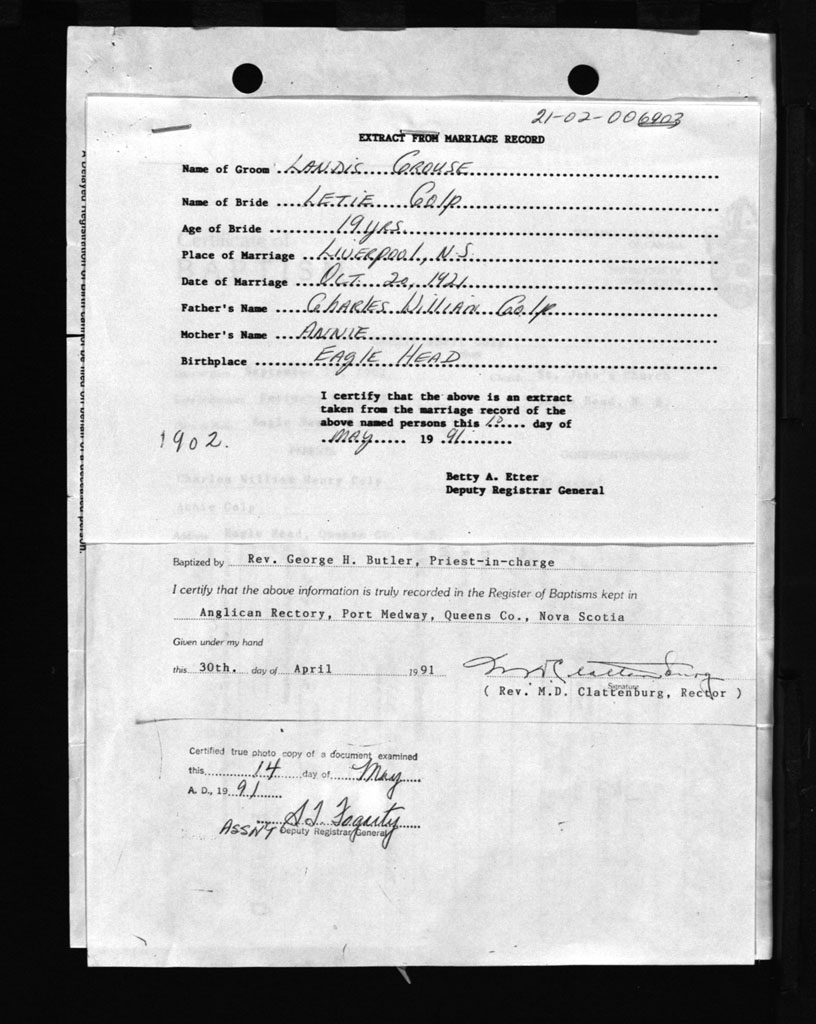 21-02-006903
EXTRACT FROM MARRIAGE RECORD
Name of Groom ..LANDIS CROUSE
Name of Bride ...LETIE Colp
Age of Bride ........19 yrs
Place of Marriage ..LIVERPOOL, N.S.
Date of Marriage ...OCT. 20, 1921
Father's Name ....CHARLES WILLIAM Colp
Mother's Name ...ANNIE
Birthplace .......EAGLE HEAD
I certify that the above is an extract
taken from the marriage record of the
above named persons this .... day of
..MAY...... 19 .91..........
1902.
Betty A. Etter
Deputy Registrar General
Charles William Henry Colp
Annie Colp
Baptized by Rev. George H. Butler, Priest-in-charge
I certify that the above information is truly recorded in the Register of Baptisms kept in
Anglican Rectory, Port Medway, Queens Co., Nova Scotia
Given under my hand
this 30th. day of April 1991
Signature
( Rev. M.D. Clattenburg, Rector )
Certified true photo copy of a document examined
this..........14......day of....May.....
A. D., 19..91........
Fogarty
ASSN'T Deputy Registrar General